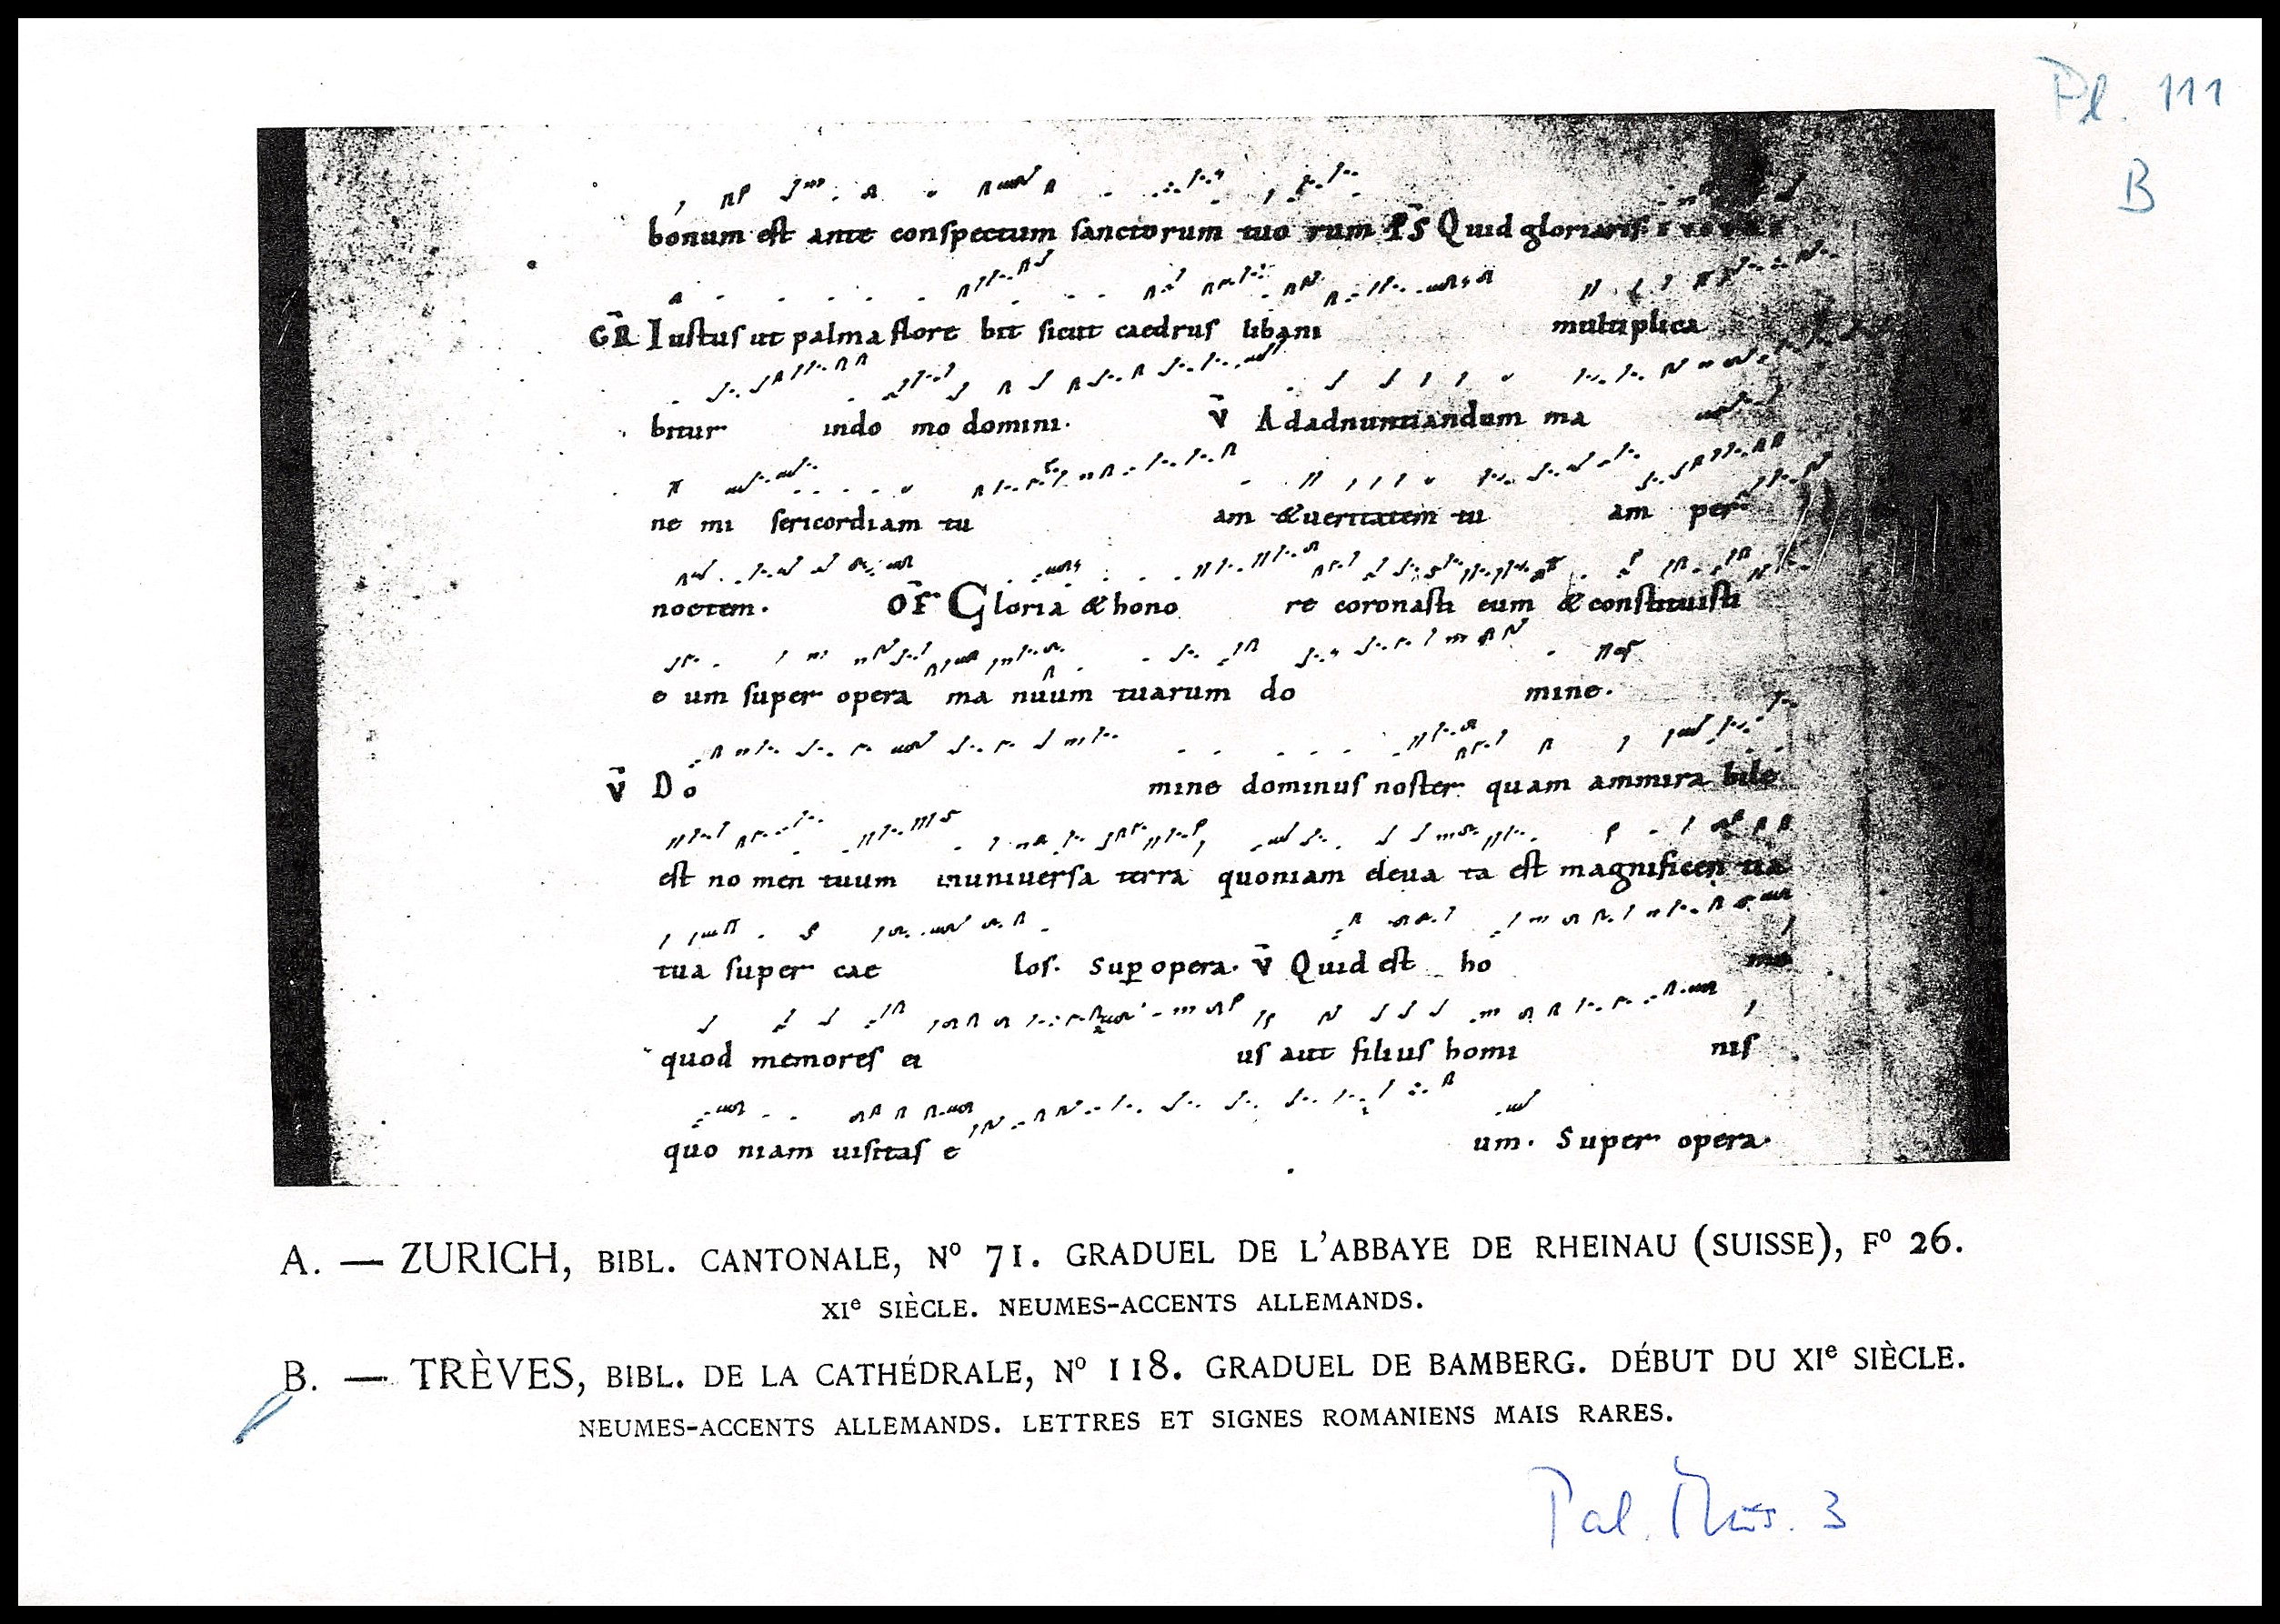 Pl. 111
B
bonum est ante conspectum sanctorum tuo rum PS Quid gloriaris
GR Iustus ut palma flore bit sicut caedrus libani multiplica
bitur indo mo domini. V Adadnuntiandum ma
ne mi sericordiam tu am & ueritatem tu am per
noctem. OF Gloria & hono re coronasti eum & constituisti
e um super opera ma nuum tuarum do mine.
V Do mine dominus noster quam ammira bile
est no men tuum inuniuersa terra quoniam eleua ta est magnificen tia
tua super cae los. Sup opera. V Quid est ho mo
quod memores ei us aut filius homi nis
quo niam uisitas e um. Super opera.
A. — ZURICH, BIBL. CANTONALE, Nº 71. GRADUEL DE L'ABBAYE DE RHEINAU (SUISSE), Fº 26.
XIe SIÈCLE. NEUMES-ACCENTS ALLEMANDS.
B. — TRÈVES, BIBL. DE LA CATHÉDRALE, Nº 118. GRADUEL DE BAMBERG. DÉBUT DU XIe SIÈCLE.
NEUMES-ACCENTS ALLEMANDS. LETTRES ET SIGNES ROMANIENS MAIS RARES.
Pal. Mus. 3